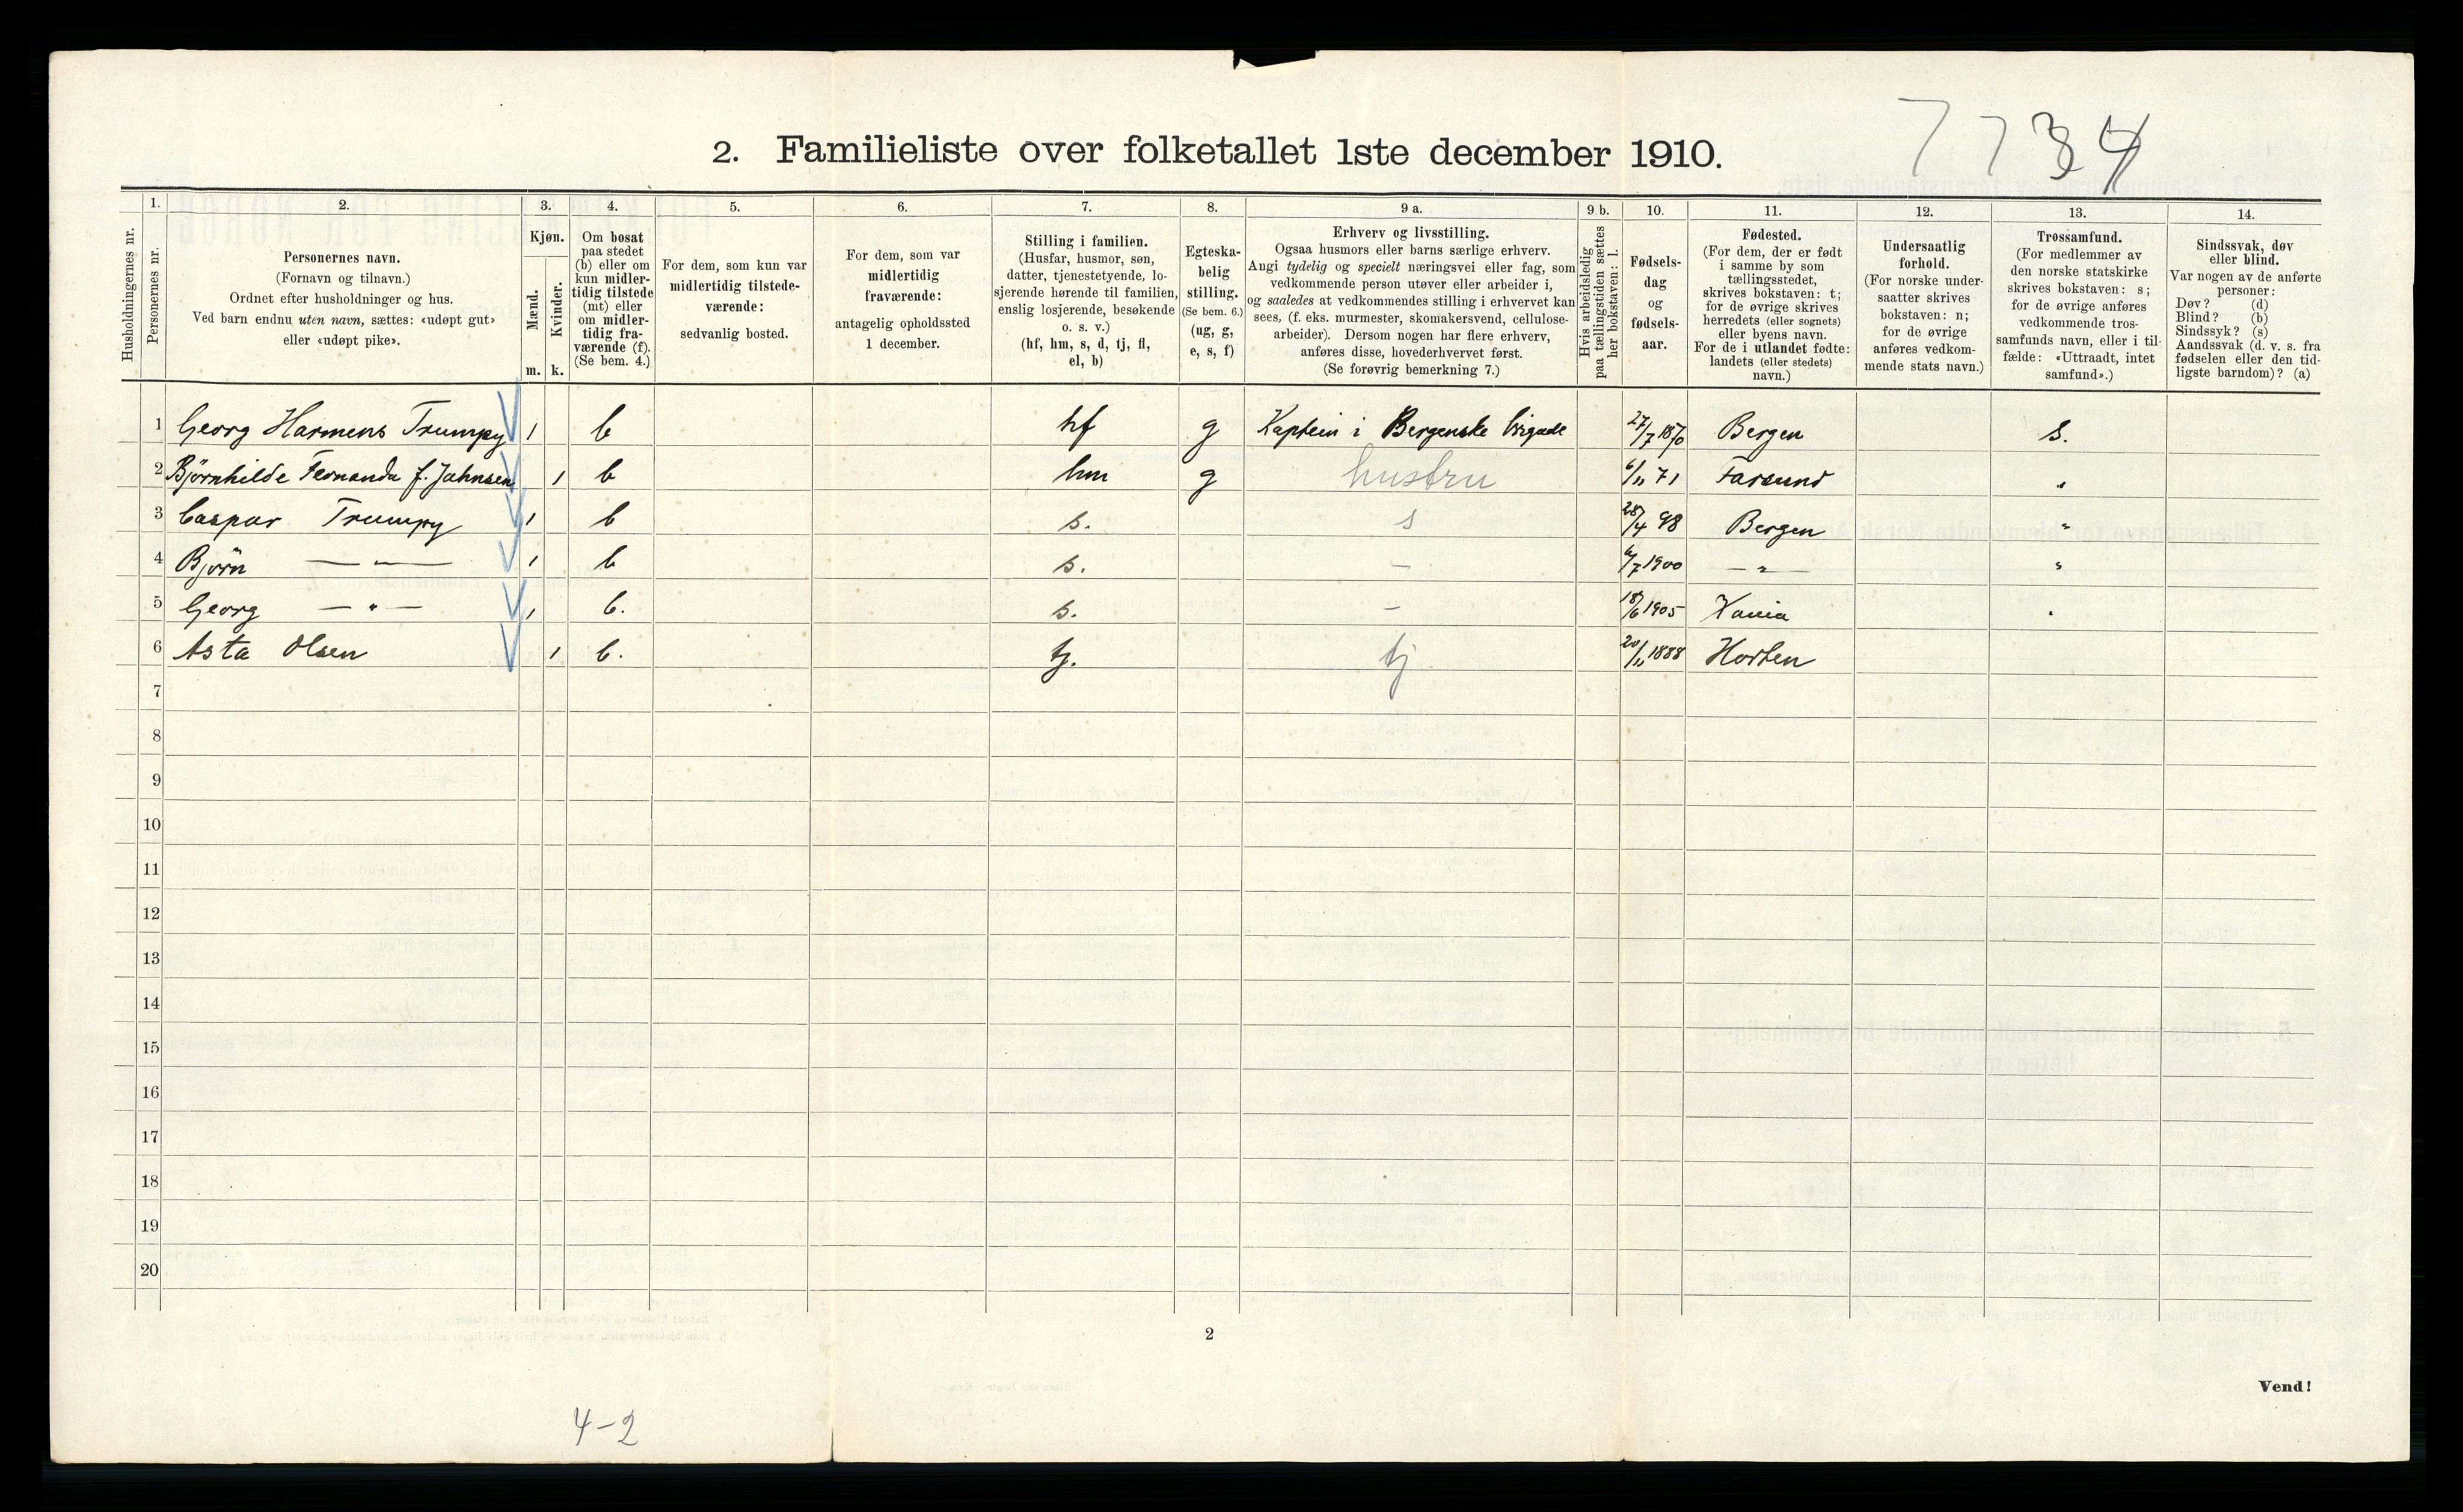 2. Familieliste over folketallet 1ste december 1910.
7 7 3 4
Husholdningernes nr.
1.
Personernes nr.
2.
Personernes navn.
(Fornavn og tilnavn.)
Ordnet efter husholdninger og hus.
Ved barn endnu uten navn, sættes: «udøpt gut»
eller «udøpt pike».
3.
Kjøn.
Mænd.
Kvinder.
m. k.
4.
Om bosat
paa stedet
(b) eller om
kun midler-
tidig tilstede
(mt) eller
om midler-
tidig fra-
værende (f).
(Se bem. 4.)
5.
For dem, som kun var
midlertidig tilstede-
værende:
sedvanlig bosted.
6.
For dem, som var
midlertidig
fraværende:
antagelig opholdssted
1 december.
7.
Stilling i familien.
(Husfar, husmor, søn,
datter, tjenestetyende, lo-
sjerende hørende til familien,
enslig losjerende, besøkende
o. s. v.)
(hf, hm, s, d, tj, fl,
el, b)
8.
Egteska-
belig
stilling.
(Se bem. 6.)
(ug, g,
e, s, f)
9 a.
Erhverv og livsstilling.
Ogsaa husmors eller barns særlige erhverv.
Angi tydelig og specielt næringsvei eller fag, som
vedkommende person utøver eller arbeider i,
og saaledes at vedkommendes stilling i erhvervet kan
sees, (f. eks. murmester, skomakersvend, cellulose-
arbeider). Dersom nogen har flere erhverv,
anføres disse, hovederhvervet først.
(Se forøvrig bemerkning 7.)
9 b.
Hvis arbeidsledig
paa tællingstiden sættes
her bokstaven: l.
10.
Fødsels-
dag
og
fødsels-
aar.
11.
Fødested.
(For dem, der er født
i samme by som
tællingsstedet,
skrives bokstaven: t;
for de øvrige skrives
herredets (eller sognets)
eller byens navn.
For de i utlandet fødte:
landets (eller stedets)
navn.)
12.
Undersaatlig
forhold.
(For norske under-
saatter skrives
bokstaven: n;
for de øvrige
anføres vedkom-
mende stats navn.)
13.
Trossamfund.
(For medlemmer av
den norske statskirke
skrives bokstaven: s;
for de øvrige anføres
vedkommende tros-
samfunds navn, eller i til-
fælde: «Uttraadt, intet
samfund».)
14.
Sindssvak, døv
eller blind.
Var nogen av de anførte
personer:
Døv? (d)
Blind? (b)
Sindssyk? (s)
Aandssvak (d. v. s. fra
fødselen eller den tid-
ligste barndom)? (a)
1 Georg Harmens Trumpy 1 b hf g Kaptein i Bergenske brigade 27/7 1870 Bergen s.
2 Björnhilde Fernanda f. Jahnsen 1 b hm g hustru 6/11 71 Farsund "
3 Caspar Trumpy 1 b s. s 28/4 98 Bergen "
4 Björn — " — 1 b s. – 6/7 1900 — " — "
5 Georg — " — 1 b. s. – 18/6 1905 Xania "
6 Asta Olsen 1 b. tj. tj 20/11 1888 Horten
7
8
9
10
11
12
13
14
15
16
17
18
19
20
2
Vend!
4-2